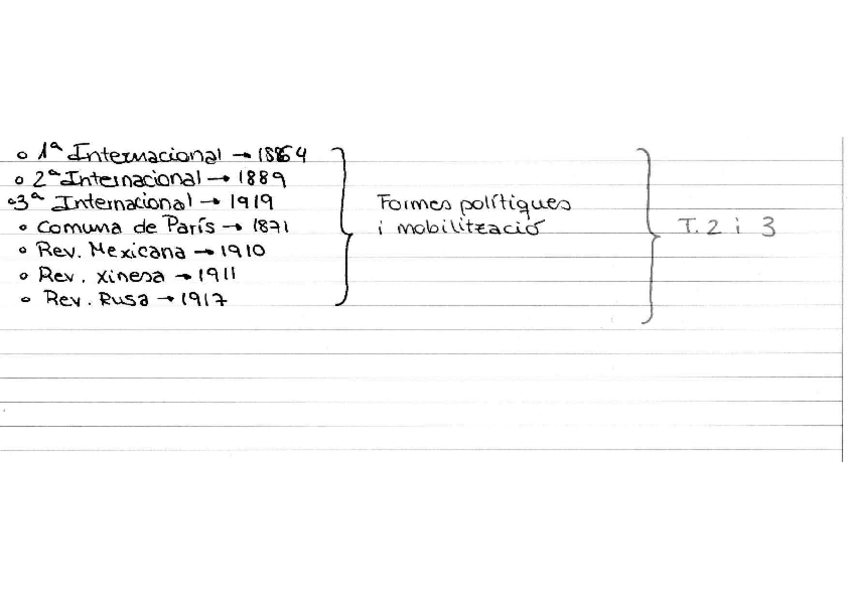 o 1ª Internacional → 1864
o 2ª Internacional → 1889
o 3ª Internacional → 1919
o Comuna de París → 1871
o Rev. Mexicana → 1910
o Rev. Xinesa → 1911
o Rev. Rusa → 1917
Formes polítiques
i mobilització
T. 2 i 3